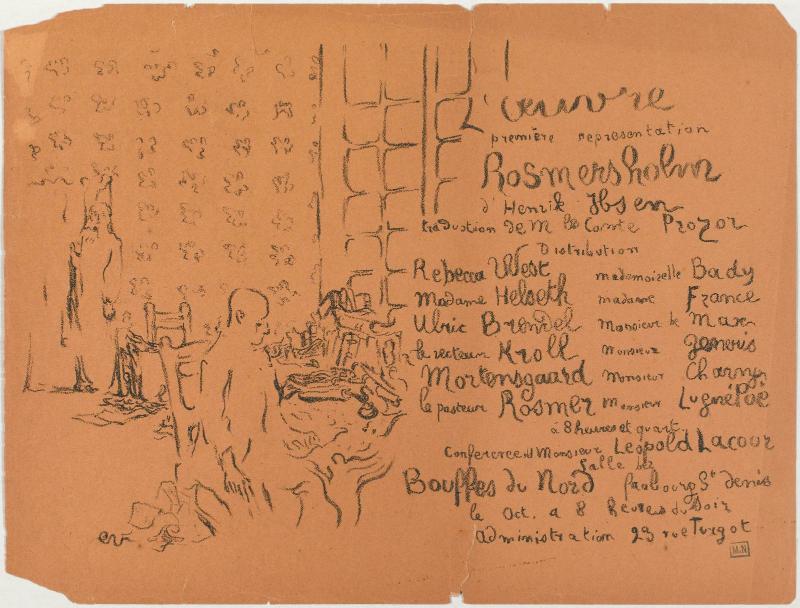 L'œuvre
première representation
Rosmersholm
d'Henrik Ibsen
traduction de M le Comte Prozor
Distribution
Rebecca West mademoizelle Bady
Madame Helseth madame France
Ulric Brendel Monsieur de Max
le recteur Kroll Monsieur
Mortensgaard Monsieur Charny
le pasteur Rosmer monsieur Lugné Poë
à 8 heures et quart.
Conference de Monsieur Leopold Lacour
Salle des
Bouffes du Nord faubourg St denis
le Oct. a 8 heures du Soir
administration 23 rue Turgot
ev
M.N